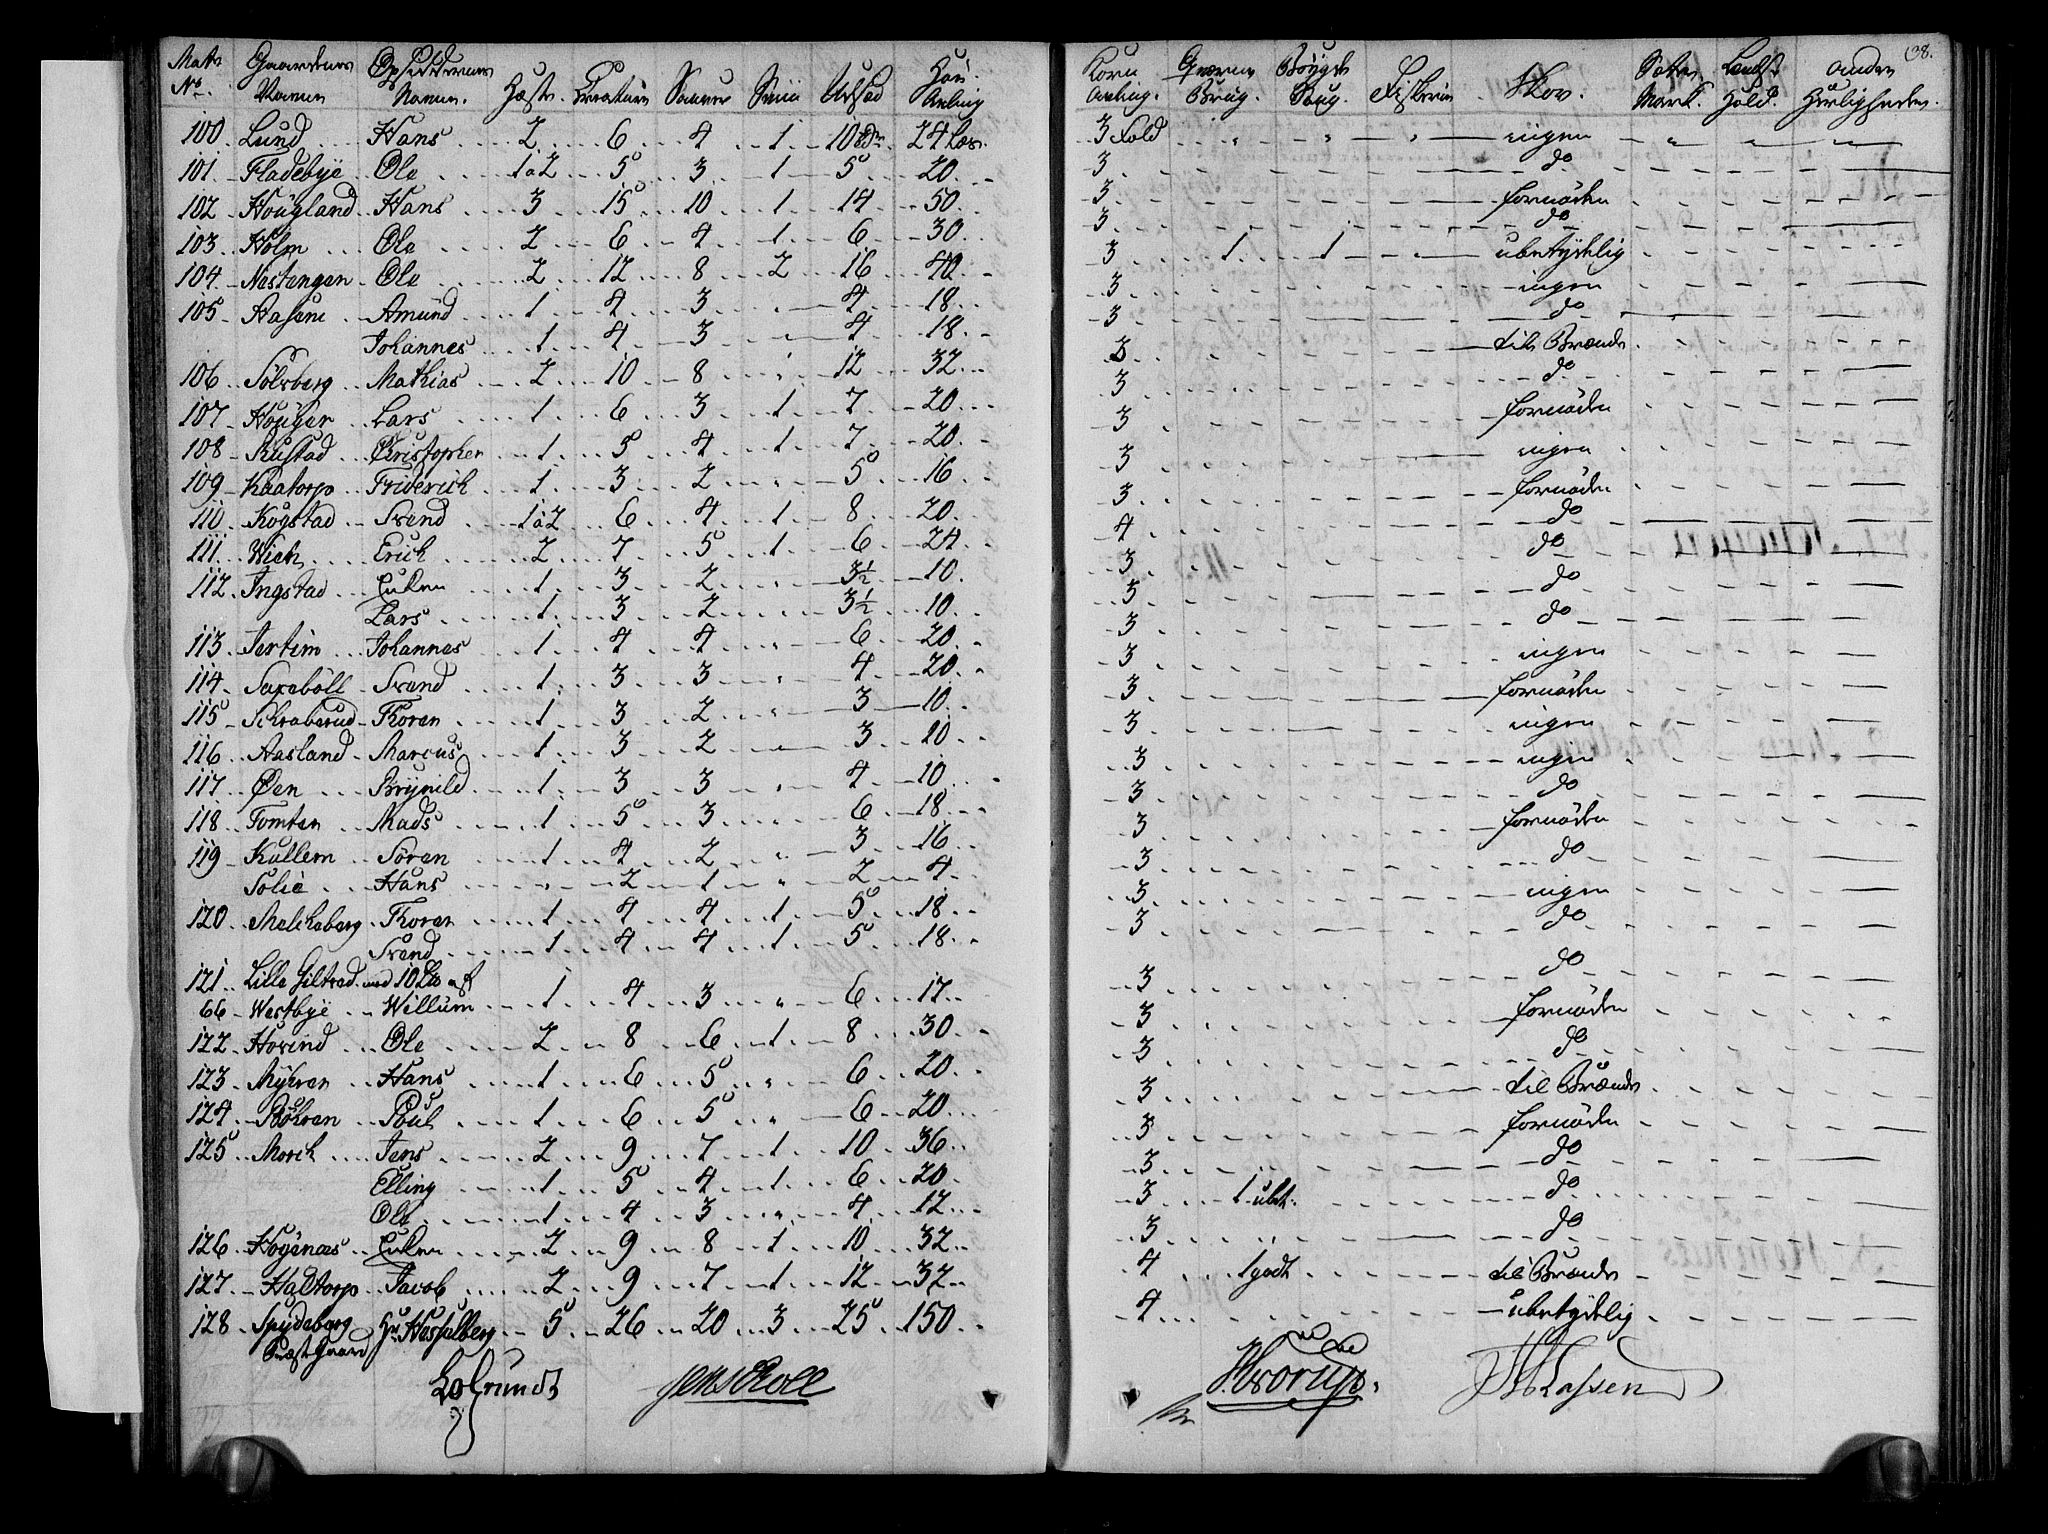 Matr: No. Gaardenes Navne Opsiddernes Navne. Hæste. Creaturer Sauver Sviin Udsæd Høe Avling
100 Lund Hans 2 6 4 1 10 Tdr 24 Læs
101 Fladebye Ole 1 a 2 5 3 1 5 20
102 Hougland Hans 3 15 10 1 14 50
103 Holm Ole 2 6 4 1 6 30
104 Nestengen Ole 2 12 8 2 16 40
105 Aasene Amund 1 4 3 " 4 18
Johannes 1 4 3 " 4 18
106 Solsberg Mathias 2 10 8 " 12 32
107 Houger Lars 1 6 3 1 7 20
108 Rustad Christopher 1 5 4 1 7 20
109 Kaatorp Friderich 1 3 2 5 16
110 Kogstad Svend 1 a 2 6 4 1 8 20
111 Wich Erich 2 7 5 1 6 24
112 Ingstad Enken 1 3 2 " 3½ 10
Lars 1 3 2 3½ 10
113 Tertim Johannes 1 4 4 " 6 20
114 Saxeböll Svend 1 3 3 4 20
115 Schraberud Thoren 1 3 2 " 3 10
116 Aasland Marcus 1 3 2 3 10
117 Øen Brynild 1 3 3 " 4 10
118 Tomten Mads 1 5 3 6 18
119 Kullern Sören 1 4 2 " 3 16
Solie Hans " 2 1 " 2 4
120 Melcheberg Thoren 1 4 4 1 5 18
Svend 1 4 4 1 5 18
121 Lille Giltved med 10 Lb af
66 Westbye Willum 1 4 3 " 6 17
122 Hovind Ole 2 8 6 1 8 30
123 Myhren Hans 1 6 5 " 6 20
124 Böhren Poul 1 6 5 " 6 20
125 Morch Jens 2 9 7 1 10 36
Elling 1 5 4 1 6 20
Ole 1 4 3 " 4 12
126 Høgenæs Enken 2 9 8 1 10 32
127 Haltorp Jacob 2 9 7 1 12 32
128 Spydeberg Hr Hesselberg 5 26 20 3 25 150
Præst Gaard
Jens Roll
38.
Korn Avling. Qværne Brug. Bøygde Saug. Fiskerie Skov. Sæter Marck. Landst Hold. Anden Herligheder.
3 Fold " " " ingen " " "
3 do
3 fornøden
3 do
3 1 1 ubetydelig
3 ingen
3 do
3 til Brænde
3 do
3 fornøden
3 ingen
3 fornøden
4 do
3 do
3 do
3 do
3 ingen
3 fornøden
3 ingen
3 ingen
3 do
3 fornøden
3 do
3 ingen
3 do
do
3
3 fornøden
3 do
3 til Brænde
3 fornøden
3 do
3 1 ubet. do
3 do
4 1 godt til Brænde
4 ubetydelig